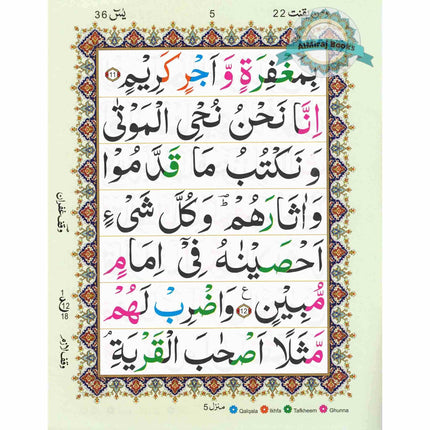 يٰسٓ 36 5 ومن يقنت 22
AlMairaj Books
بِمَغْفِرَةٍ وَّ اَجْرٍ كَرِيْمٍ ۝11
اِنَّا نَحْنُ نُحْيِ الْمَوْتٰى
وَنَكْتُبُ مَا قَدَّمُوْا
وَاٰثَارَهُمْ ؕ وَكُلَّ شَىْءٍ
اَحْصَيْنٰهُ فِىْٓ اِمَامٍ
مُّبِيْنٍ ۝12 ع وَاضْرِبْ لَهُمْ
مَّثَلًا اَصْحٰبَ الْقَرْيَةِ ۘ
وقف غفران
12
18
وقف لازم
منزل 5
Qalqala Ikhfa Tafkheem Ghunna